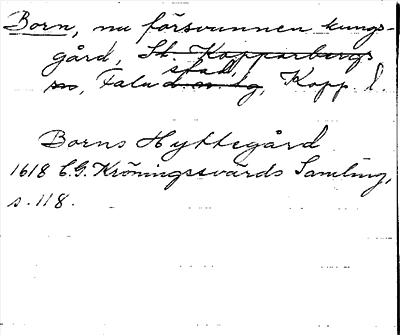 Born, nu försvunnen kungs-
gård, St. Kopparbergs
sn, Falu stad, Kopp. l.
Borns Hyttegård
1618 C.G. Kröningssvärds Samling,
s. 118.